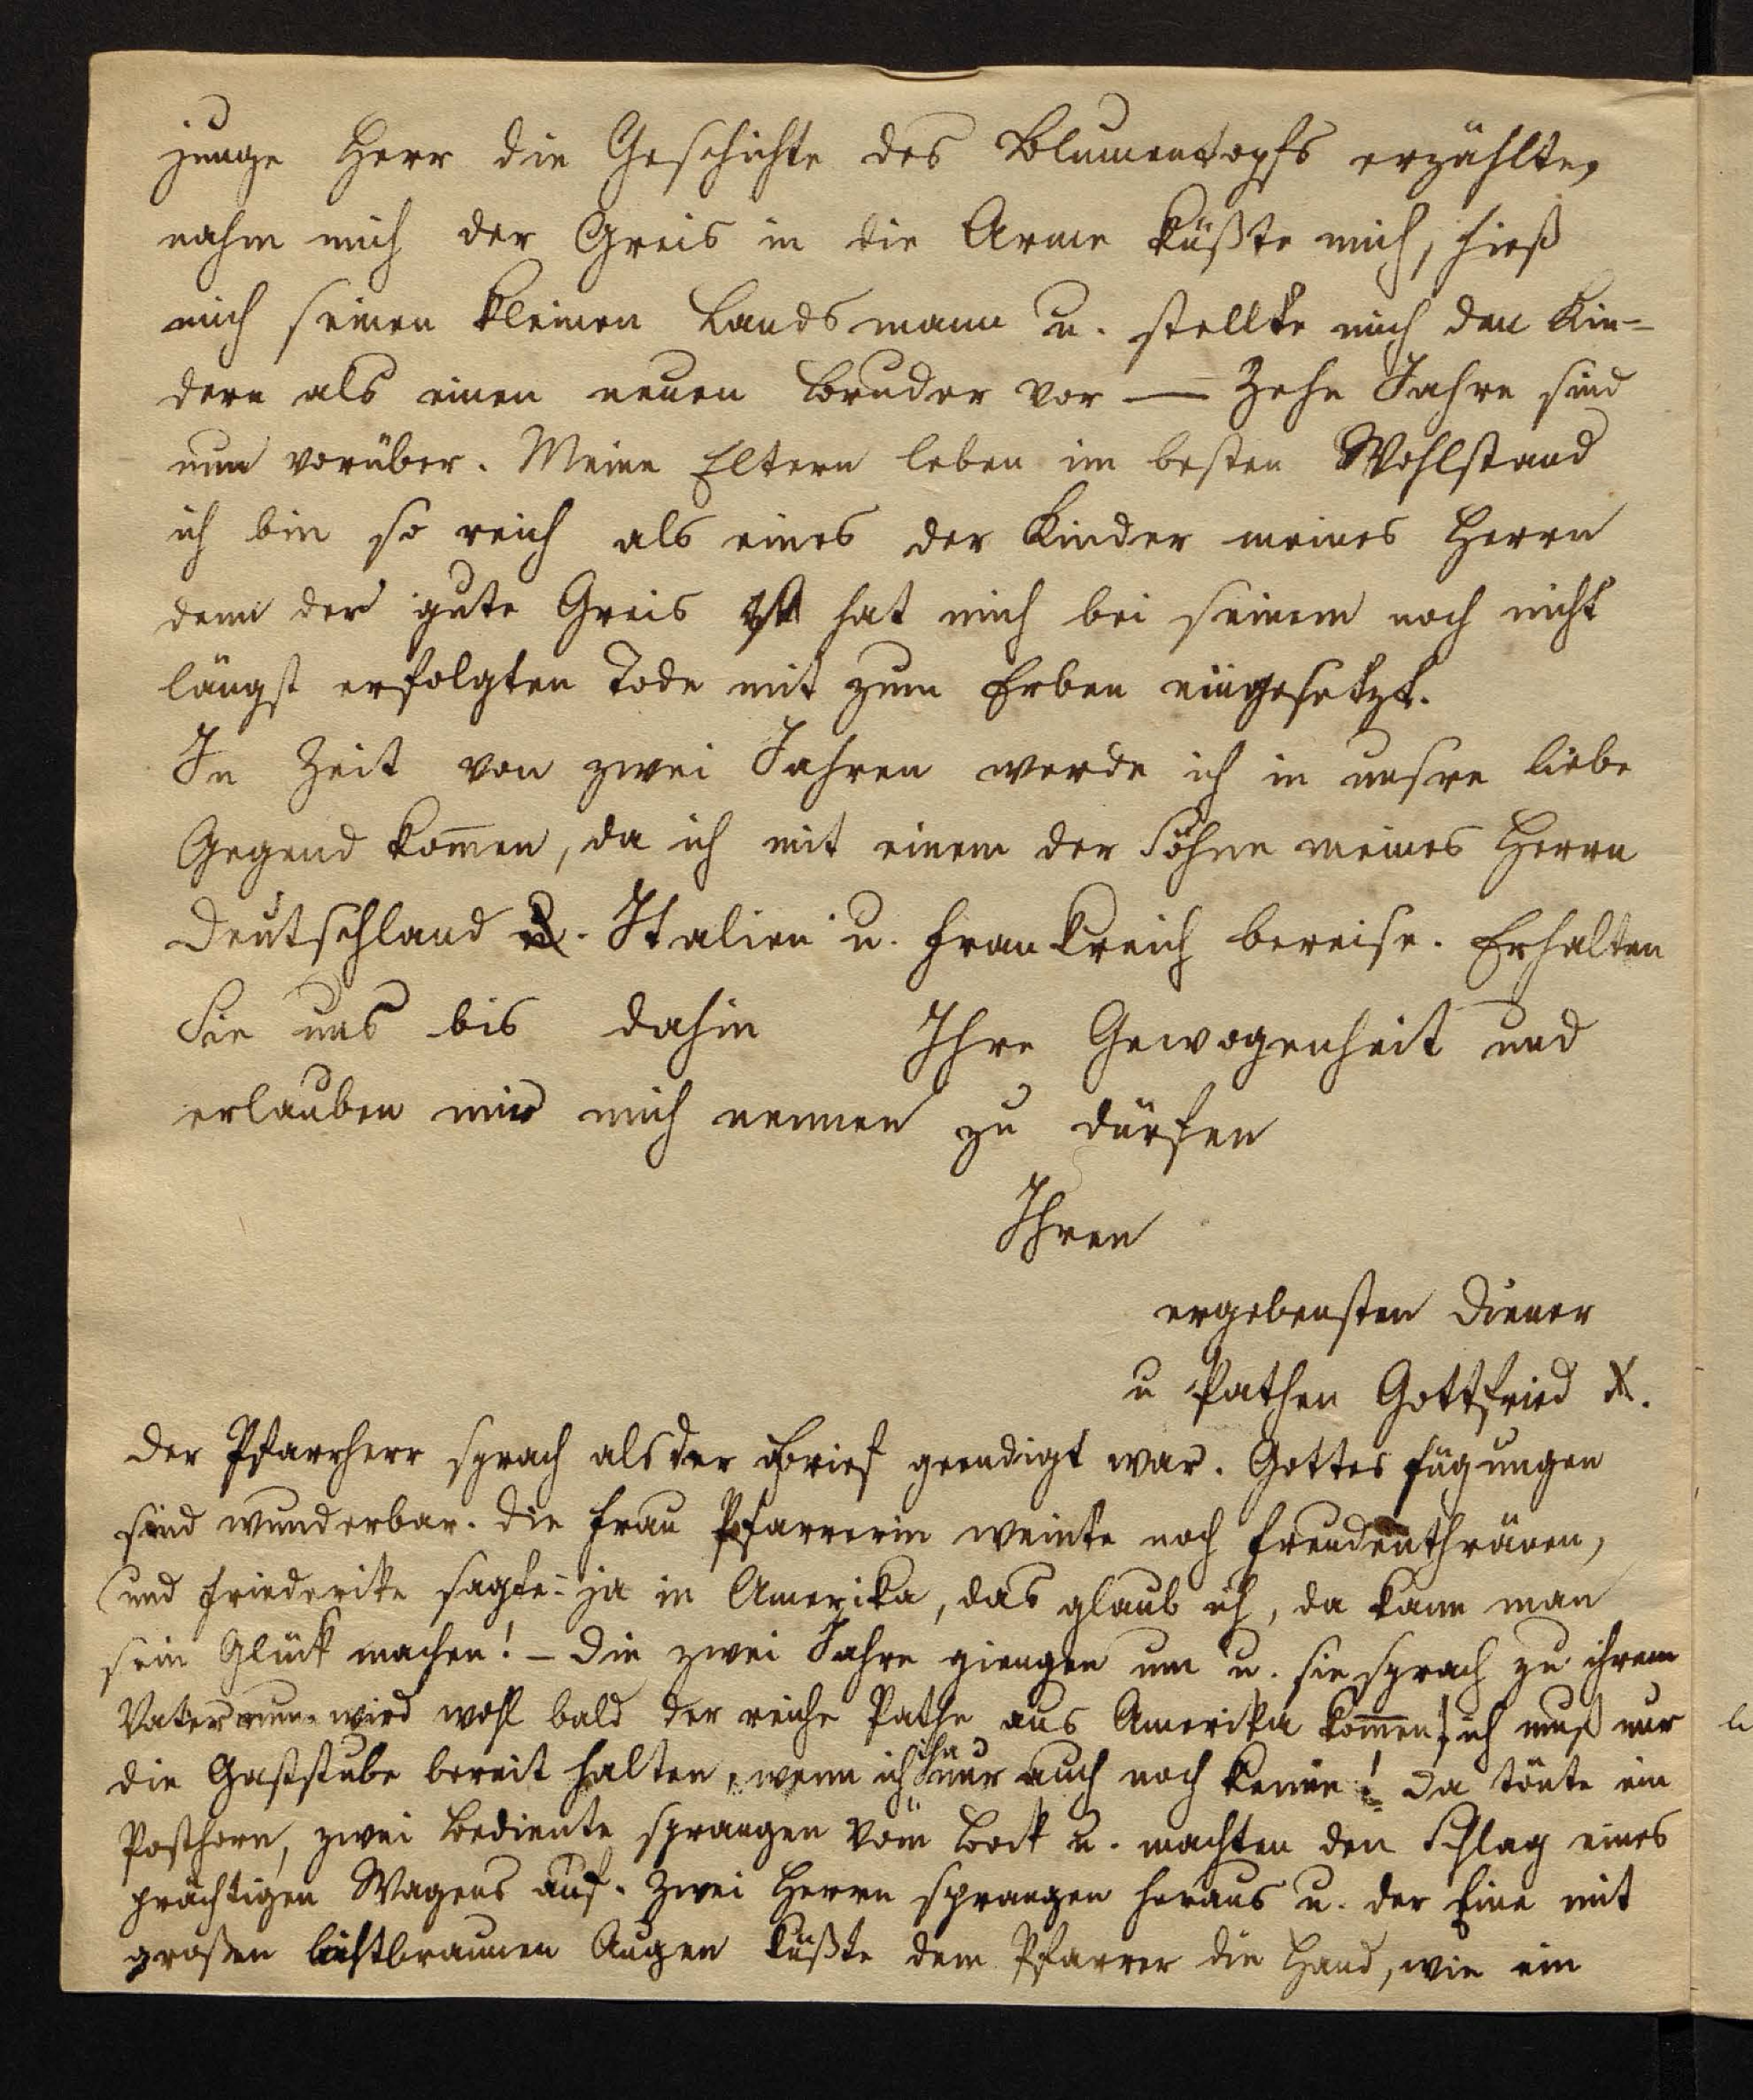 junge Herr die Geschichte des Blumentopfs erzählte,
nahm mich der Greis in die Arme küßte mich, hieß
mich seinen kleinen Landsmann u. stellte mich den Kin-
dern als einen neuen Bruder vor — Zehn Jahre sind
nun vorüber. Meine Eltern leben im besten Wohlstand
ich bin so reich als eines der Kinder meines Herrn
denn der gute Greis hat mich bei seinem noch nicht
längst erfolgten Tode mit zum Erben eingesetzt.
In Zeit von zwei Jahren werde ich in unsre liebe
Gegend kom̄en, da ich mit einem der Söhne meines Herrn
Deutschland u. Italien u. Frankreich bereise. Erhalten
Sie uns bis dahin Ihre Gewogenheit und
erlauben mir mich nennen zu dürfen
Ihren
ergebensten Diener
u Pathen Gottfried X.
Der Pfarrherr sprach als der Brief geendigt war. Gottes Fügungen
sind wunderbar. Die Frau Pfarrerin weinte noch Freudenthränen,
und Friederike sagte:- ja in Amerika, das glaub ich, da kann man
sein Glück machen! – Die zwei Jahre giengen um u. sie sprach zu ihrem
Vater nun wird wohl bald der reiche Pathe aus Amerika kom̄en! ich muß nur
die Gaststube bereit halten, wenn ich ihn nur auch noch kenne! Da tönte ein
Posthorn, zwei Bediente sprangen vom Bock u. machten den Schlag eines
prächtigen Wagens auf. Zwei Herrn sprangen heraus u. der Eine mit
großen lichtbraunen Augen küßte dem Pfarrer die Hand, wie ein